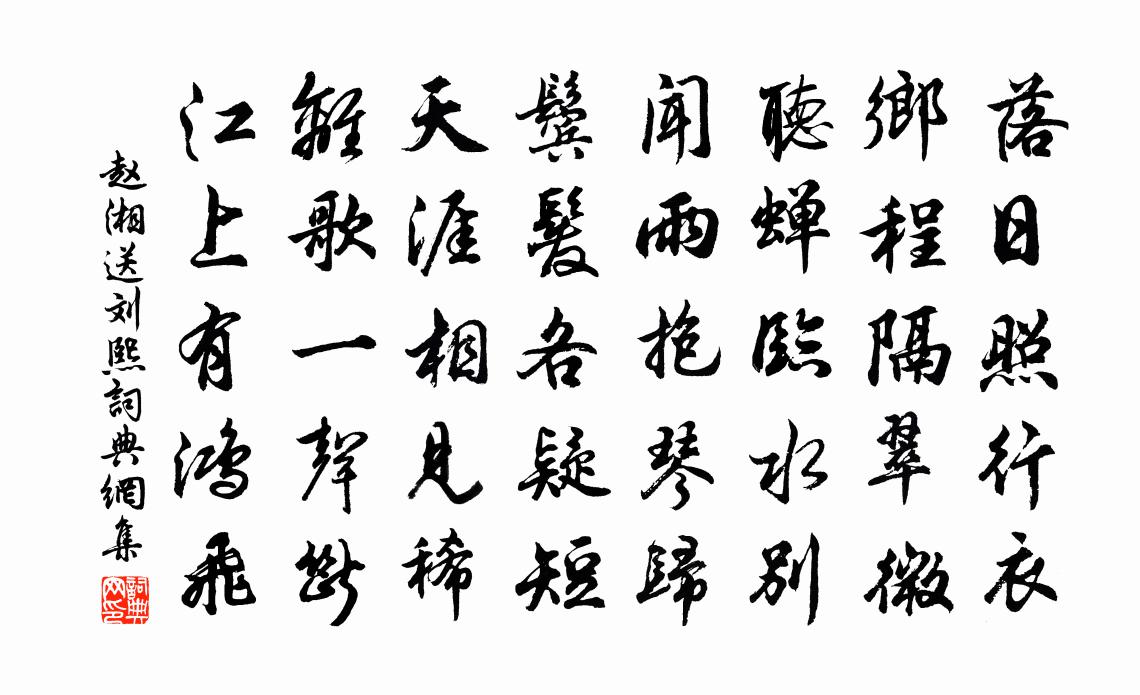 落日照行衣
鄉程隔翠微
聽蝉臨水別
聞雨抱琴歸
鬓髮各疑短
天涯相見稀
離歌一聲斷
江上有鴻飛
赵湘送刘熙詞典網集
詞典
网印